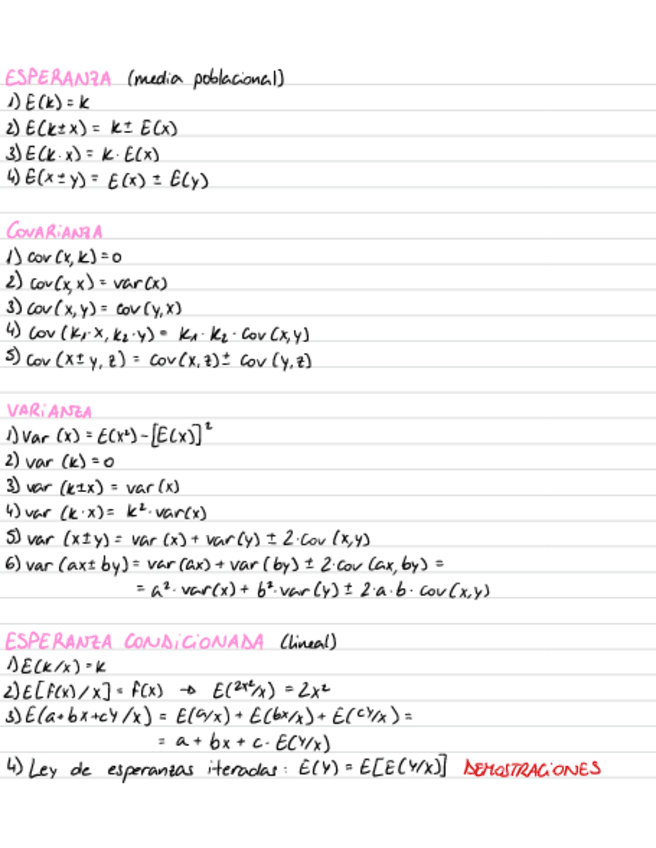 ESPERANZA (media poblacional)
1) E(k) = k
2) E(k±x) = k ± E(x)
3) E(k·x) = k·E(x)
4) E(x±y) = E(x) ± E(y)
COVARIANZA
1) cov(x,k) = 0
2) cov(x,x) = var(x)
3) cov(x,y) = cov(y,x)
4) cov(k₁·x, k₂·y) = k₁·k₂·cov(x,y)
5) cov(x±y, z) = cov(x,z) ± cov(y,z)
VARIANZA
1) var(x) = E(x²) - [E(x)]²
2) var(k) = 0
3) var(k±x) = var(x)
4) var(k·x) = k²·var(x)
5) var(x±y) = var(x) + var(y) ± 2·cov(x,y)
6) var(ax±by) = var(ax) + var(by) ± 2·cov(ax,by) =
= a²·var(x) + b²·var(y) ± 2·a·b·cov(x,y)
ESPERANZA CONDICIONADA (lineal)
1) E(k/x) = k
2) E[f(x)/x] = f(x) → E(2x²/x) = 2x²
3) E(a+bx+cy/x) = E(a/x) + E(bx/x) + E(cy/x) =
= a + bx + c·E(y/x)
4) Ley de esperanzas iteradas: E(y) = E[E(y/x)] DEMOSTRACIONES